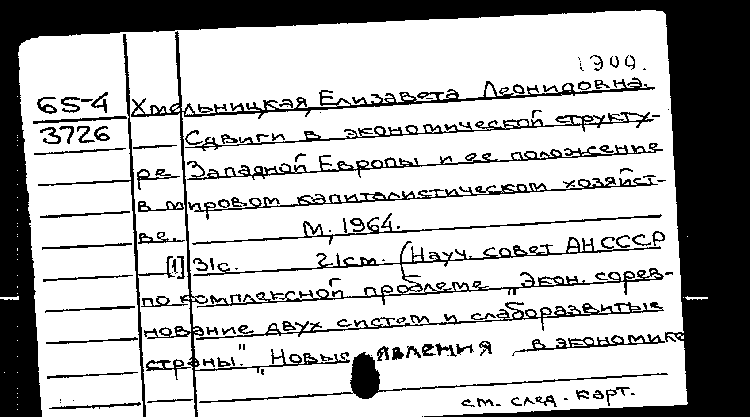 1900.
65-4 Хмельницкая, Елизавета Леонидовна.
3726 Сдвиги в экономической структу-
ре Западной Европы и ее положение
в мировом капиталистическом хозяйст-
ве. М., 1964.
[1] 31с. 21см. (Науч. совет АН СССР
по комплексной проблеме „Экон. сорев-
нование двух систем и слаборазвитые
страны". „Новые явления в экономике
см. след. карт.